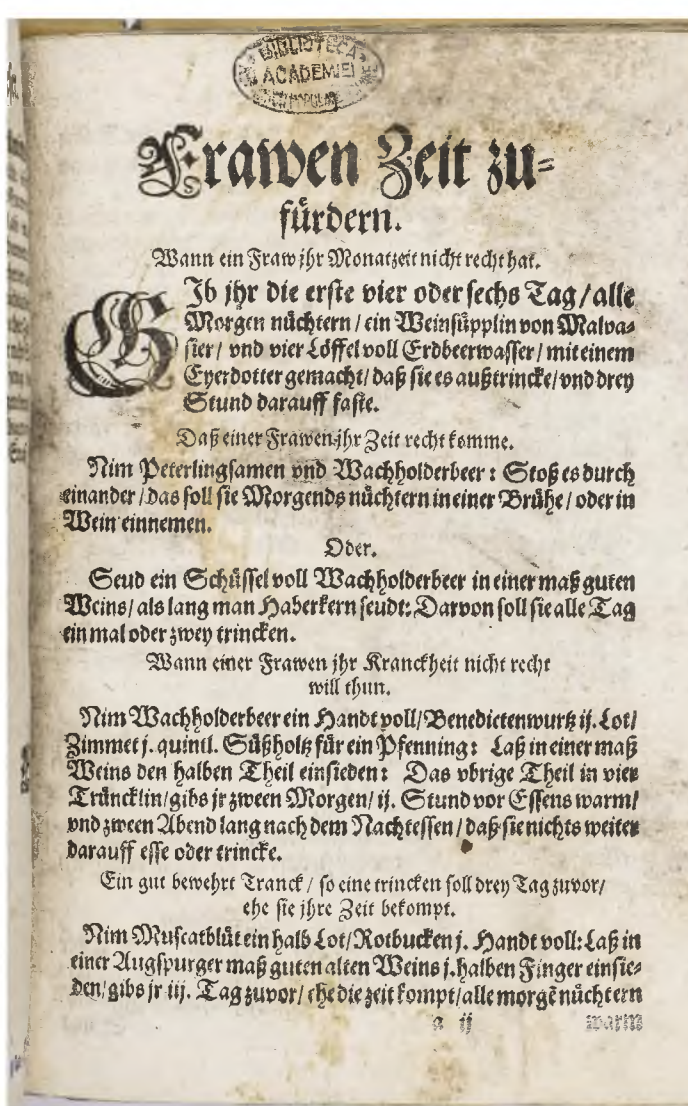 BIBLIOTECA
ACADEMIEI
Frawen Zeit zu=
fürdern.
Wann ein Fraw jhr Monatzeit nicht recht hat.
GIb jhr die erste vier oder sechs Tag/alle
Morgen nüchtern/ein Weinsüpplin von Malva-
sier/vnd vier Löffel voll Erdbeerwasser/mit einem
Eyerdotter gemacht/daß sie es außtrincke/vnd drey
Stund darauff faste.
Daß einer Frawen jhr Zeit recht komme.
Nim Peterlingsamen vnd Wachholderbeer: Stoß es durch
einander/das soll sie Morgends nüchtern in einer Brühe/oder in
Wein einnemen.
Oder.
Seud ein Schüssel voll Wachholderbeer in einer maß guten
Weins/als lang man Haberkern seudt: Darvon soll sie alle Tag
ein mal oder zwey trincken.
Wann einer Frawen jhr Kranckheit nicht recht
will thun.
Nim Wachholderbeer ein Handt voll/Benedictenwurtz ij. Lot/
Zimmet j. quintl. Süßholtz für ein Pfenning: Laß in einer maß
Weins den halben Theil einsieden: Das vbrige Theil in vier
Träncklin/gibs jr zween Morgen/ij. Stund vor Essens warm/
vnd zween Abend lang nach dem Nachtessen/daß sie nichts weiter
darauff esse oder trincke.
Ein gut bewehrt Tranck/so eine trincken soll drey Tag zuvor/
ehe sie jhre Zeit bekompt.
Nim Muscatblüt ein halb Lot/Rotbucken j. Handt voll: Laß in
einer Augspurger maß guten alten Weins j. halben Finger einsie=
den/gibs jr iij. Tag zuvor/ehe die zeit kompt/alle morgē nüchtern
a ij warm